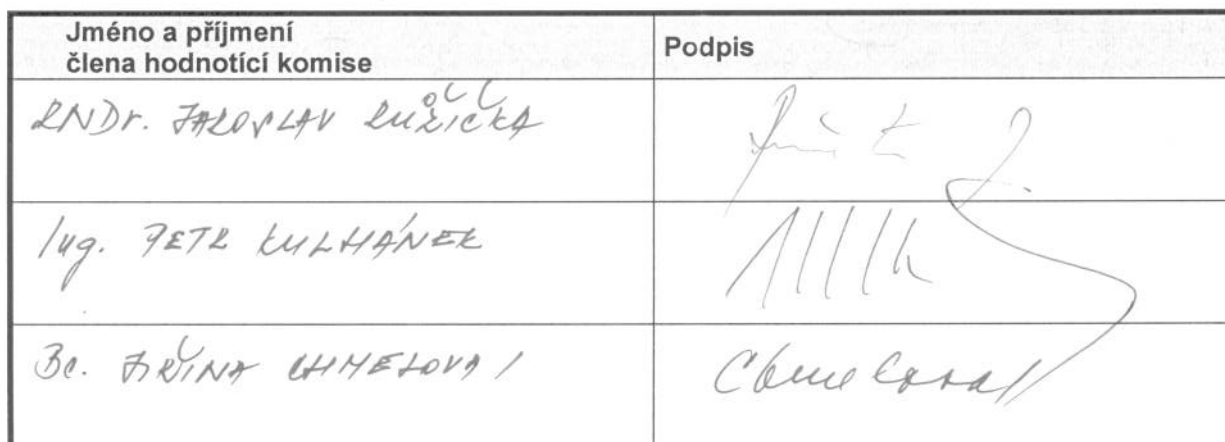 Jméno a příjmení
člena hodnotící komise
Podpis
RNDr. JAROSLAV RŮŽIČKA
Ing. PETR KULHÁNEK
Bc. JIŘINA CHMELOVÁ
Chmelová